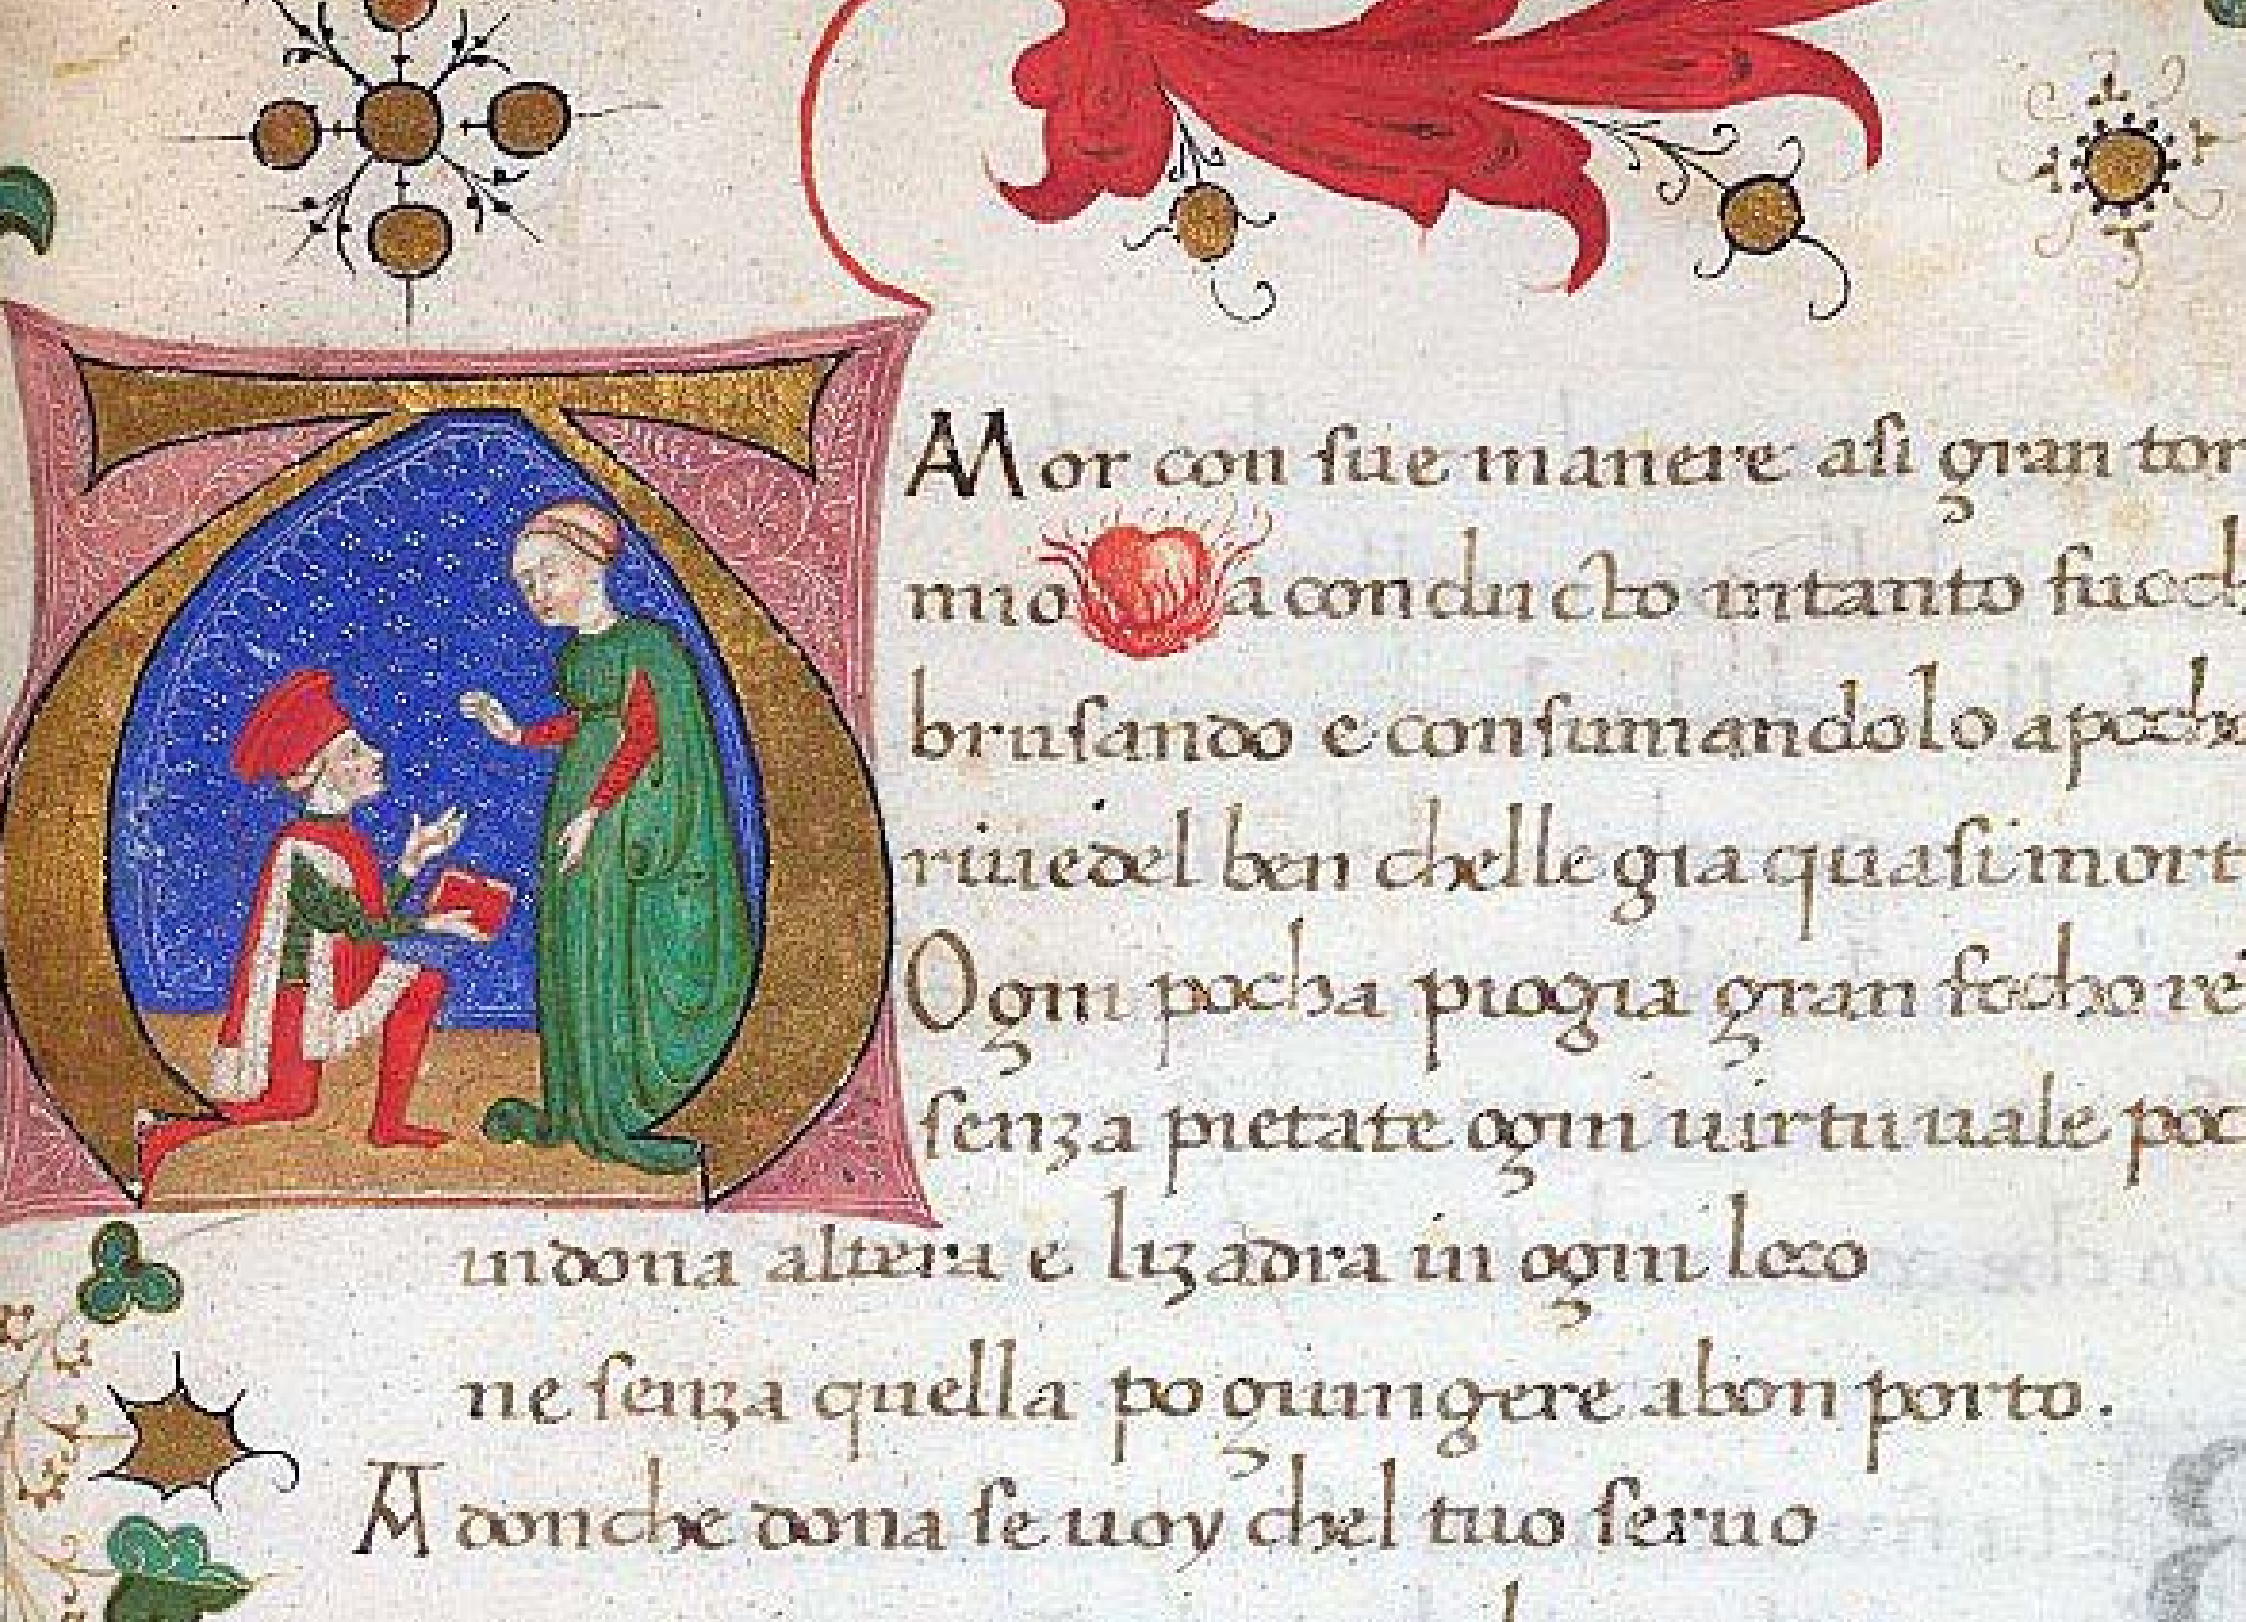 AMor con sue manere asi gran tor
mio a conducto intanto fuoch
brusando e consumandolo a pocho
riuedel ben chelle gia quasi mort
Ogni pocha piogia gran focho re
senza pietate ogni uirtu uale poc
in dona altera e lizadra in ogni loco
ne senza quella po guingere abon porto.
Adonche dona se uoy chel tuo seruo